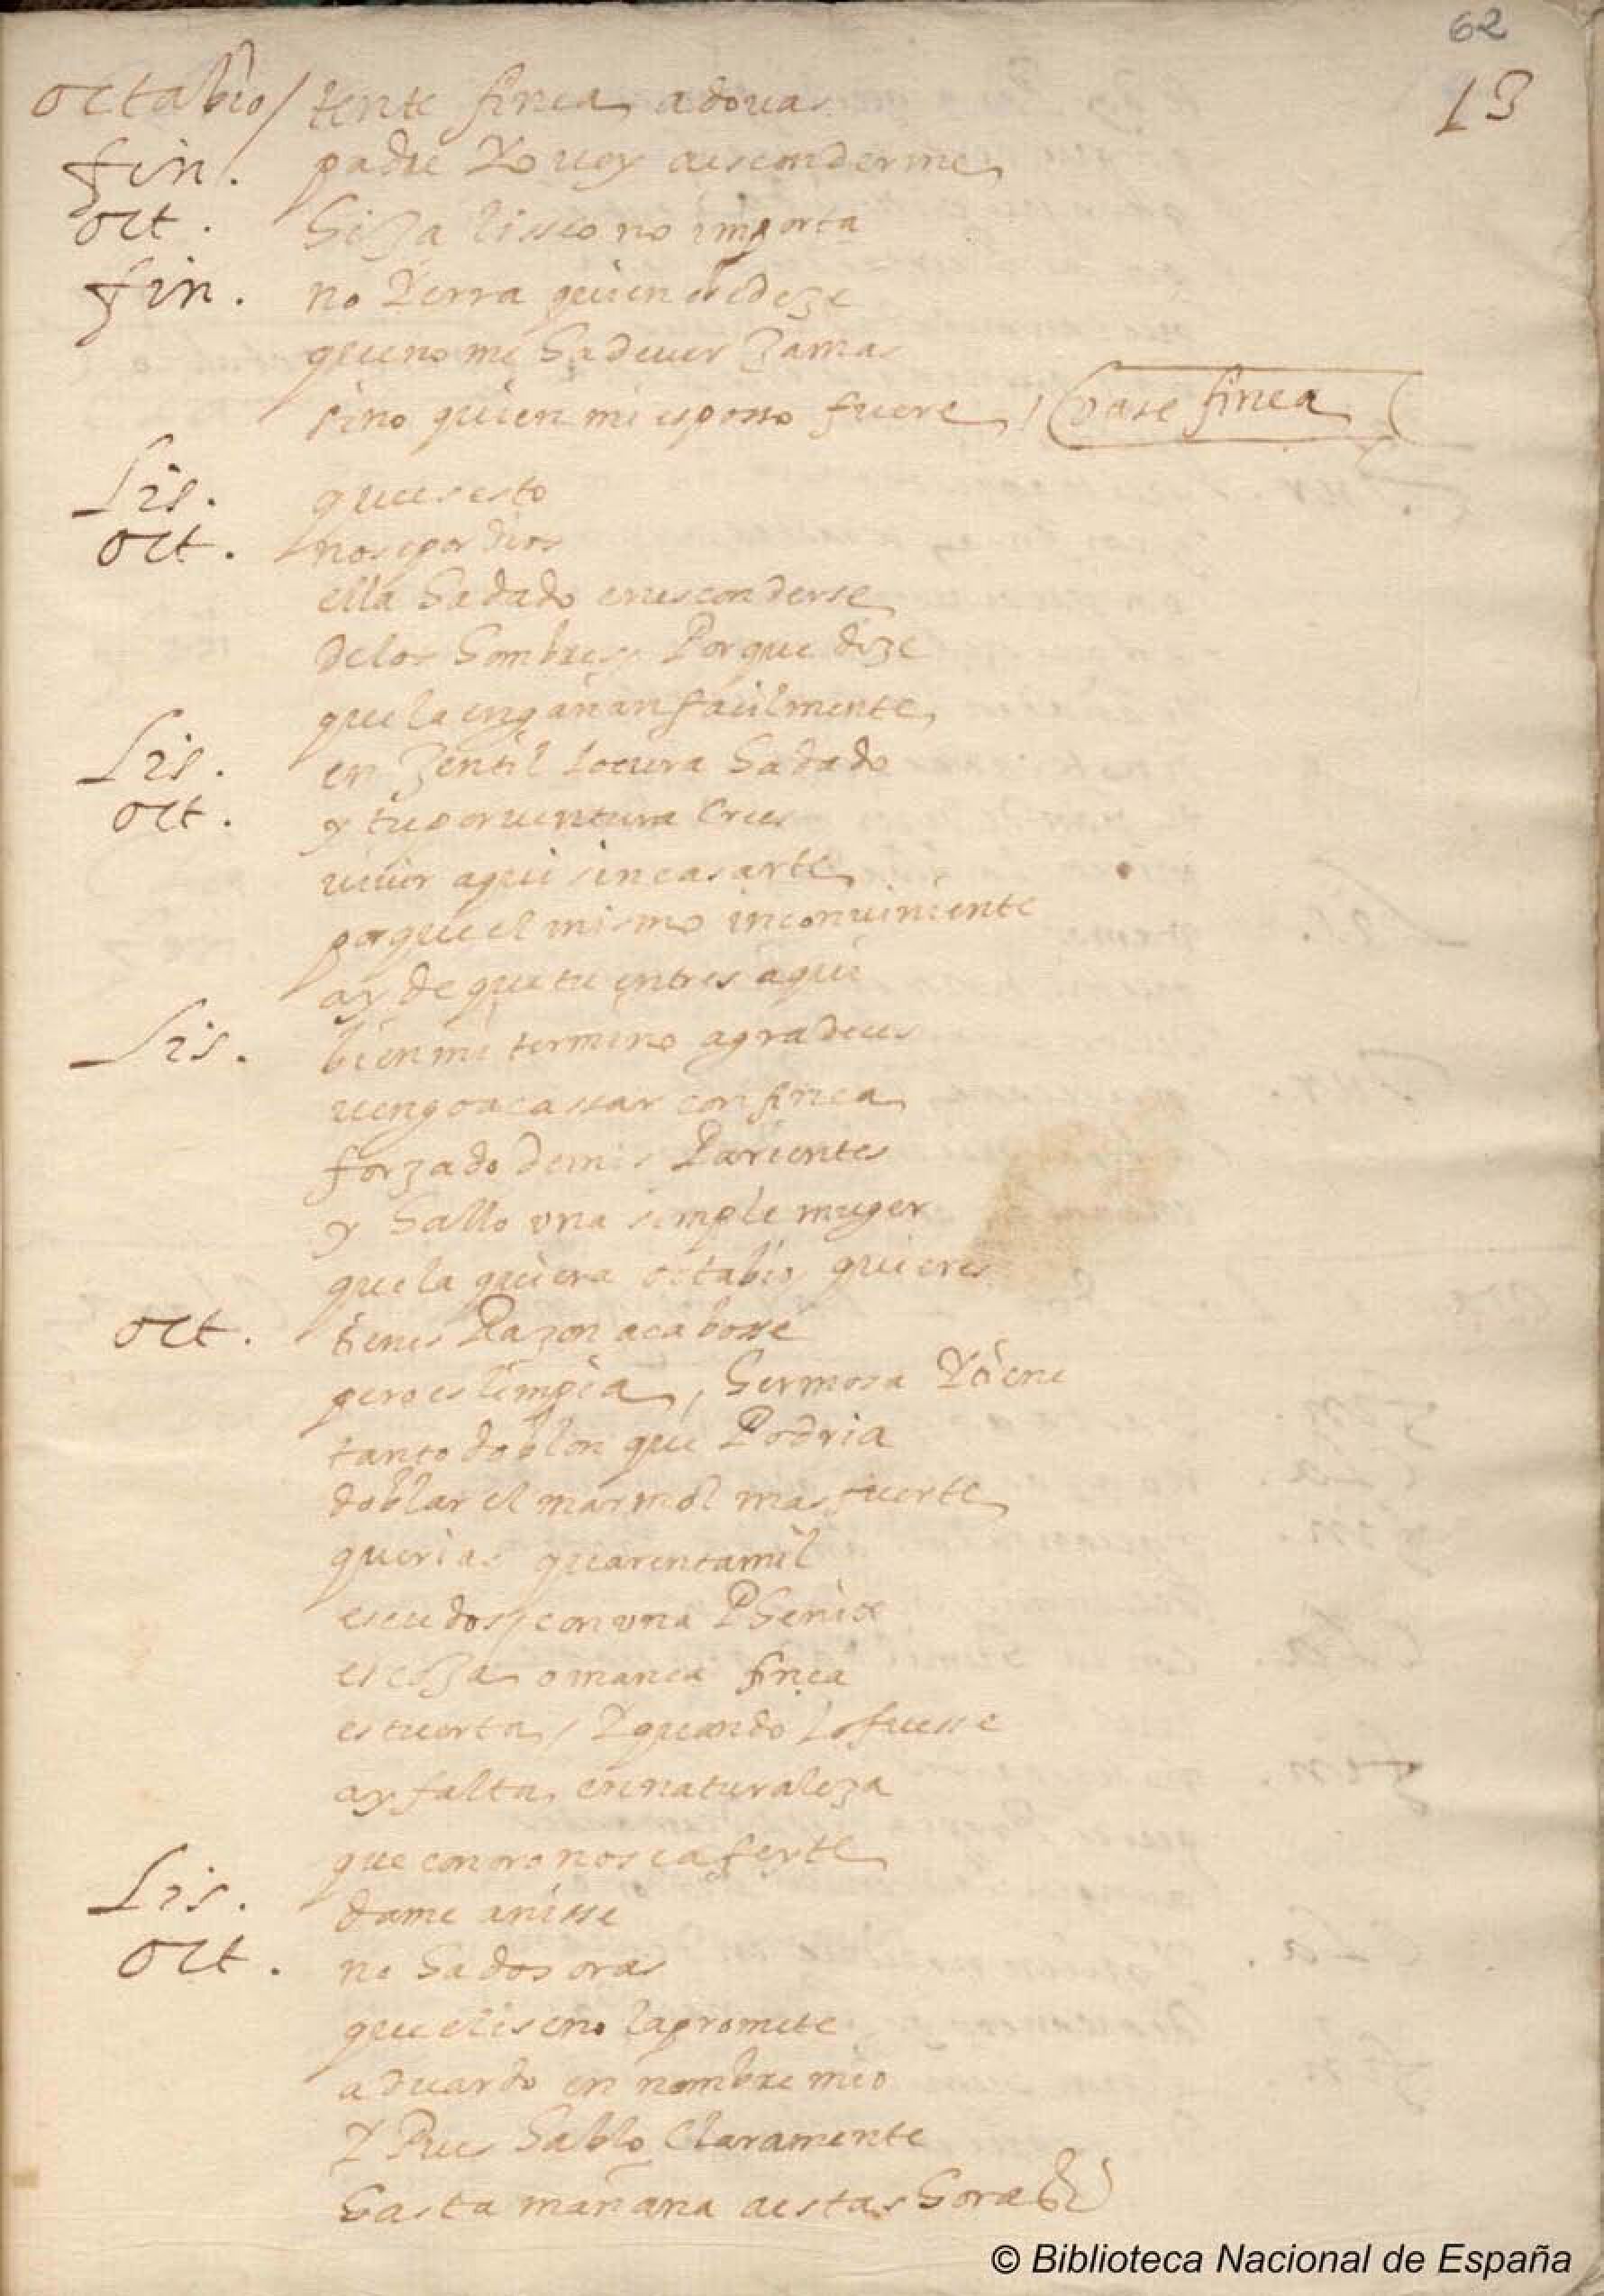 62
13
octabio / tente finea adonas
fin. padre Yo uoy aesconderme
oct. hija lisseo no importa
fin. no Yerra quien obedeze
que no me ha deuer Jamas
sino quien mi esposso fuere / vase finea
Lis. que es esto
oct. no se por dios
ella ha dado en esconderse
delos hombres Porque dize
que la engañan facilmente
Lis. en Jentil locura ha dado
oct. y tu por uentura Crees
uiuir aqui sin casarte
porque el mismo inconuiniente
ay de que tu entres aqui
Lis. bien mi termino agradeces
uengo a cassar con finea
forzado de mis Parientes
y hallo vna simple muger
que la quiera octabio quieres
oct. tienes Razon acabosse
pero es limpia, hermosa Y tiene
tanto doblon que Podria
doblar el marmol mas fuerte
querias quarenta mil
escudos / con vna Phenix
es coja o manca finea
es tuerta / Y quando lo fuesse
ay falta en naturaleza
que con oro no sea fertil
Lis. dame a nisse
oct. no ha dos oras
que eliseno la promete
a duardo en nombre mio
Y Pues hablo Claramente
hasta mañana a estas horas
© Biblioteca Nacional de España